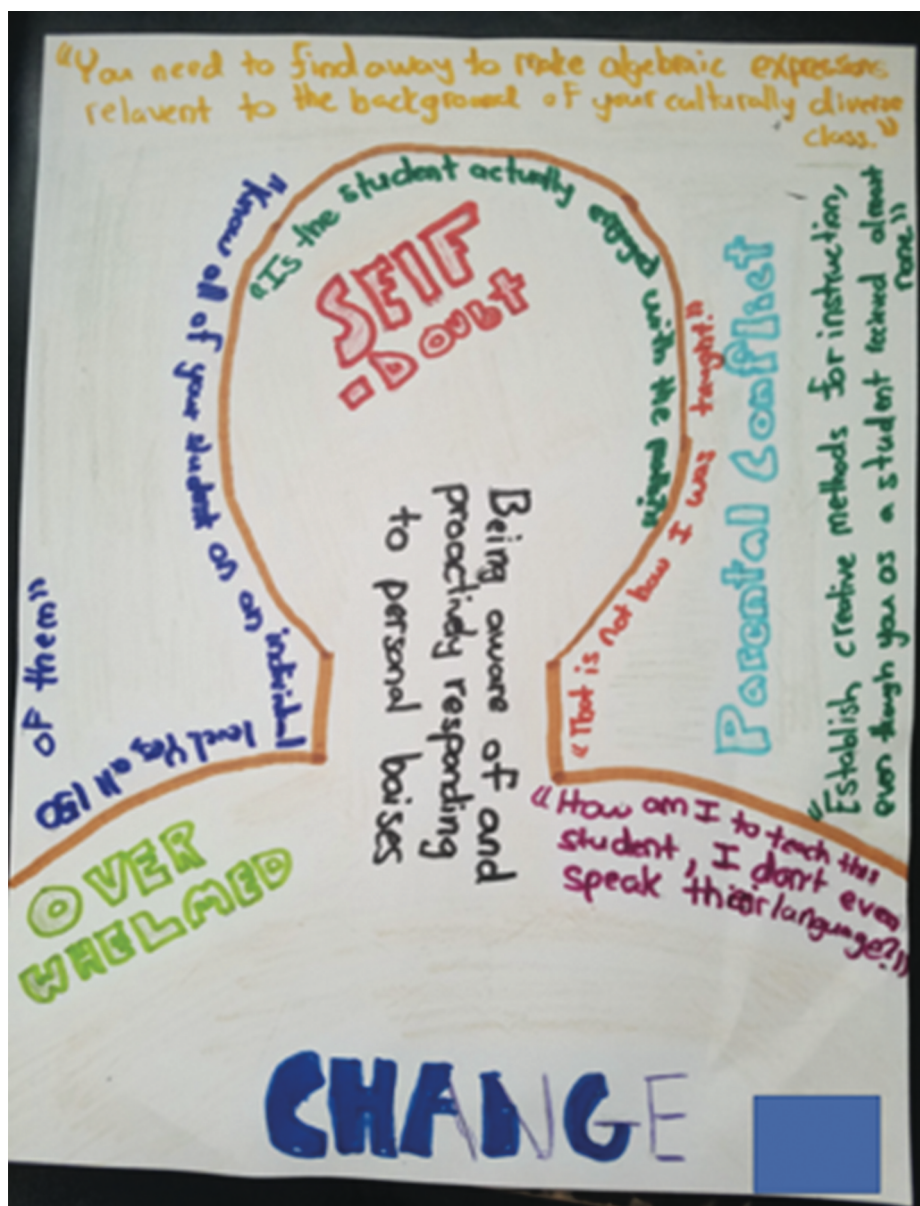 "You need to find away to make algebraic expressions
relavent to the background of your culturally diverse
class."
"Know all of your student on an individual
level Yes, all 150
of them"
"Is the student actually engaged with the
SElF
-Doubt
"That is not how I was taught."
Parental Conflict
"Establish creative methods for instruction,
even though you as a student recived almost
none"
Being aware of and
proactively responding
to personal baises
"How am I to teach this
student, I don't even
speak their language?"
OVER
WHELMED
CHANGE